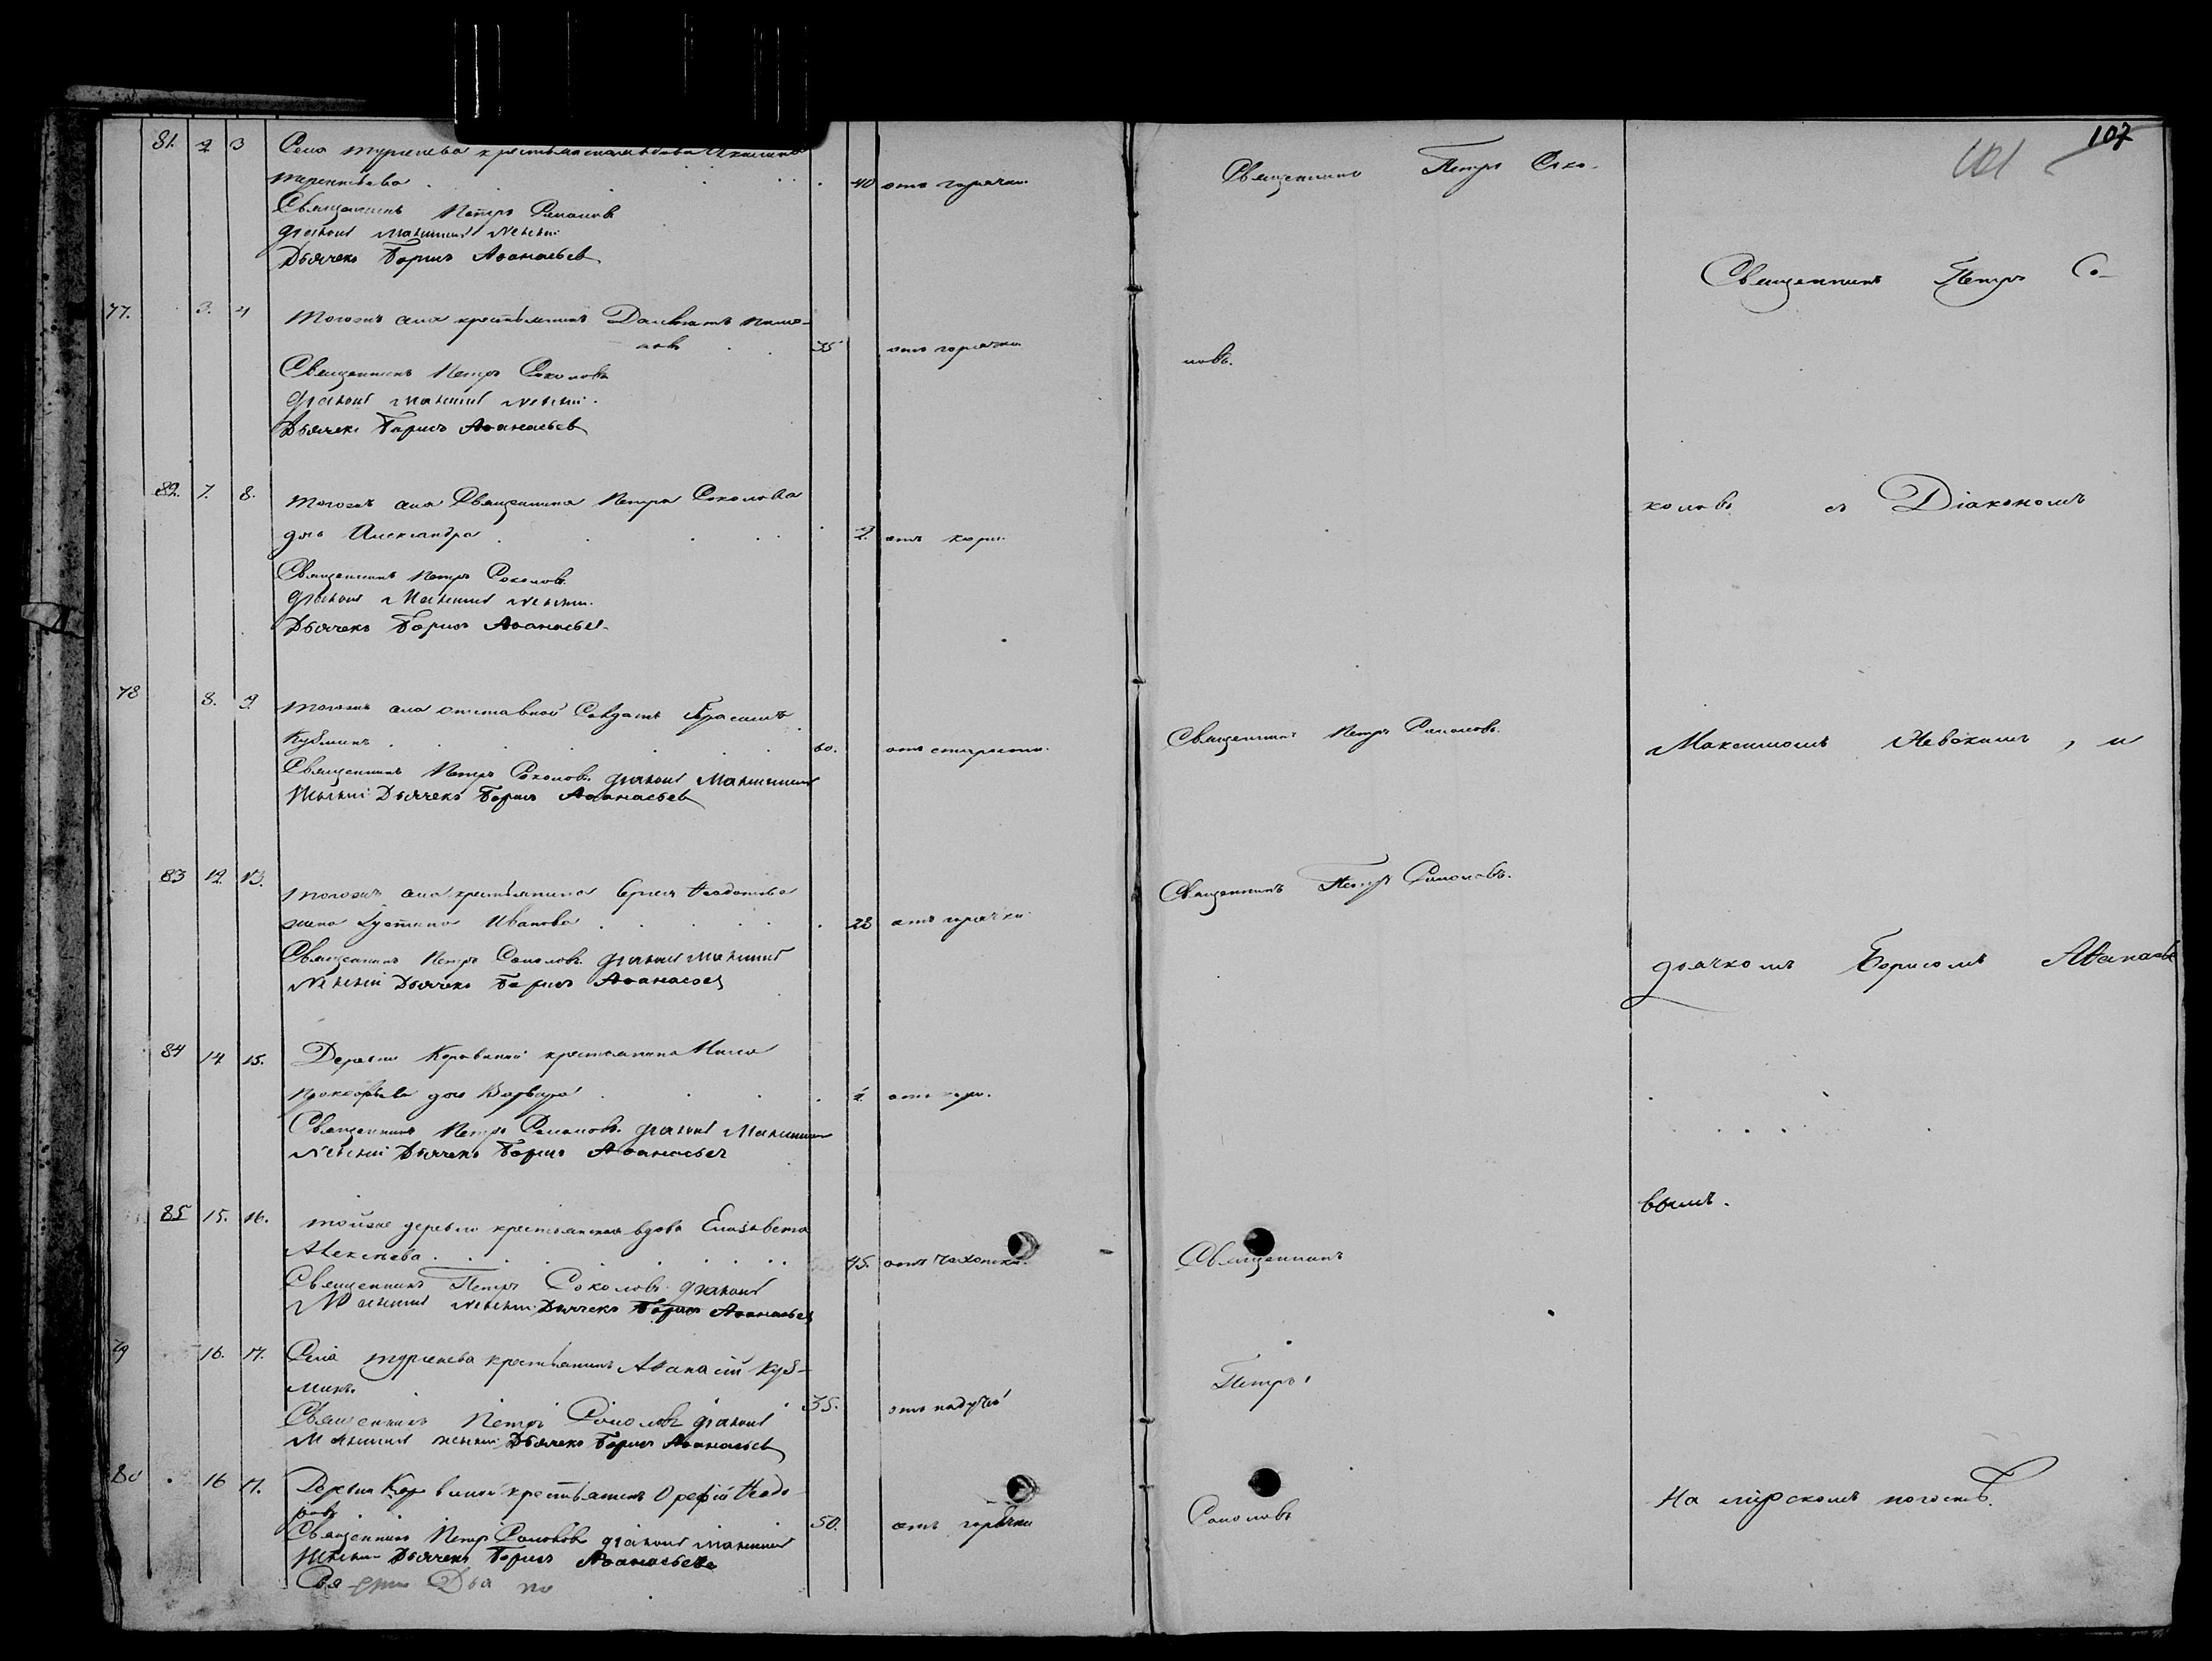 81. 2 3 Села Тургенева крестьянская вдова Акилина
Терентьева . . . 40 отъ горячки.
Священникъ Петръ Соколовъ
Діаконъ Максимъ Невскій
Дьячекъ Борисъ Аѳанасьевъ
77. 3. 4 Тогожъ села крестьянинъ
35 отъ горячки
Священникъ Петръ Соколовъ
Діаконъ Максимъ Невскій.
Дьячекъ Борисъ Аѳанасьевъ
82. 7. 8. Тогожъ села Священника Петра Соколова
дочь Александра . . . 2. отъ кори.
Священникъ Петръ Соколовъ.
Діаконъ Максимъ Невскій.
Дьячекъ Борисъ Аѳанасьевъ
78 8. 9. Тогожъ села отставной Солдатъ Герасимъ
Кузминъ . . . 60. отъ старости.
Священникъ Петръ Соколовъ. Діаконъ Максимъ
Невскій Дьячекъ Борисъ Аѳанасьевъ
83 12. 13. Тогожъ села крестьянина Ѳеодотова
жена Іустина Иванова . . . 28 отъ горячки
Священникъ Петръ Соколовъ. Діаконъ Максимъ
Невскій Дьячекъ Борисъ Аѳанасьевъ
84 14 15. Деревни крестьянина
Прокофьева дочь Варвара . . . отъ кори.
Священникъ Петръ Соколовъ. Діаконъ Максимъ
Невскій Дьячекъ Борисъ Аѳанасьевъ
85 15. 16. Тойже деревни крестьянская вдова Елизавета
Алексѣева . . . 45. отъ чахотки.
Священникъ Петръ Соколовъ. Діаконъ
Максимъ Невскій Дьячекъ Борисъ Аѳанасьевъ
79 16. 17. Села Тургенева крестьянинъ Аѳанасій Куз-
минъ. 35. отъ падучей
Священникъ Петръ Соколовъ Діаконъ
Максимъ Невскій Дьячекъ Борисъ Аѳанасьевъ
80 16 17. Деревни крестьянинъ Ѳеодо-
ровъ 50. отъ горячки
Священникъ Петръ Соколовъ Діаконъ Максимъ
Невскій Дьячекъ Борисъ Аѳанасьевъ
107
101
Священникъ Петръ Соко-
ловъ.
Священникъ Петръ Соколовъ.
Священникъ Петръ Соколовъ.
Священникъ
Петръ
Соколовъ
Священникъ Петръ Со-
коловъ съ Діакономъ
Максимомъ Невскимъ, и
дьячкомъ Борисомъ Аѳанасье
вымъ.
На мірскомъ погостѣ.